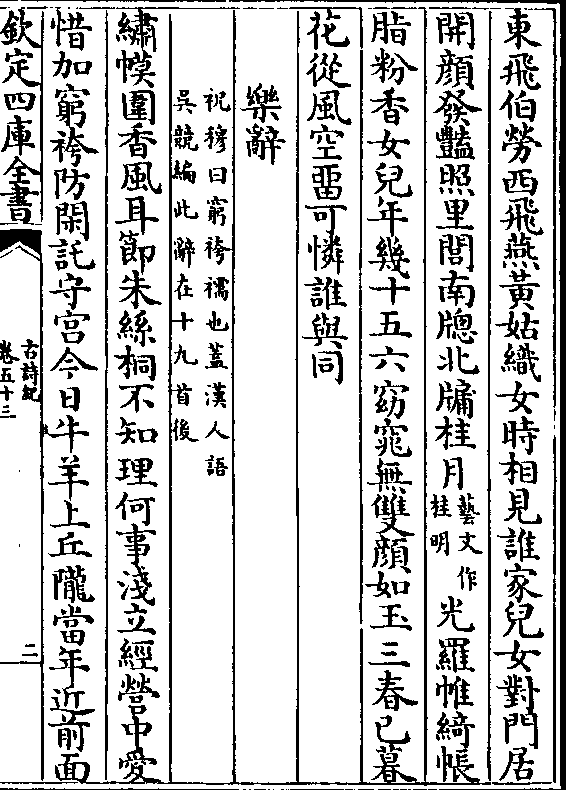 東飛伯勞西飛燕黄姑織女時相見誰家兒女對門居
開顔發豔照里閭南牎北牖桂月藝文作桂明光羅帷綺帳
脂粉香女兒年幾十五六窈窕無雙顔如玉三春已暮
花從風空畱可憐誰與同
樂辭
祝穆曰窮袴襦也葢漢人語
吳競編此辭在十九首後
繡幙圍香風耳節朱絲桐不知理何事淺立經營中愛
惜加窮袴防閑託守宫今日牛羊上丘隴當年近前面
欽定四庫全書
古詩紀
卷五十三
二